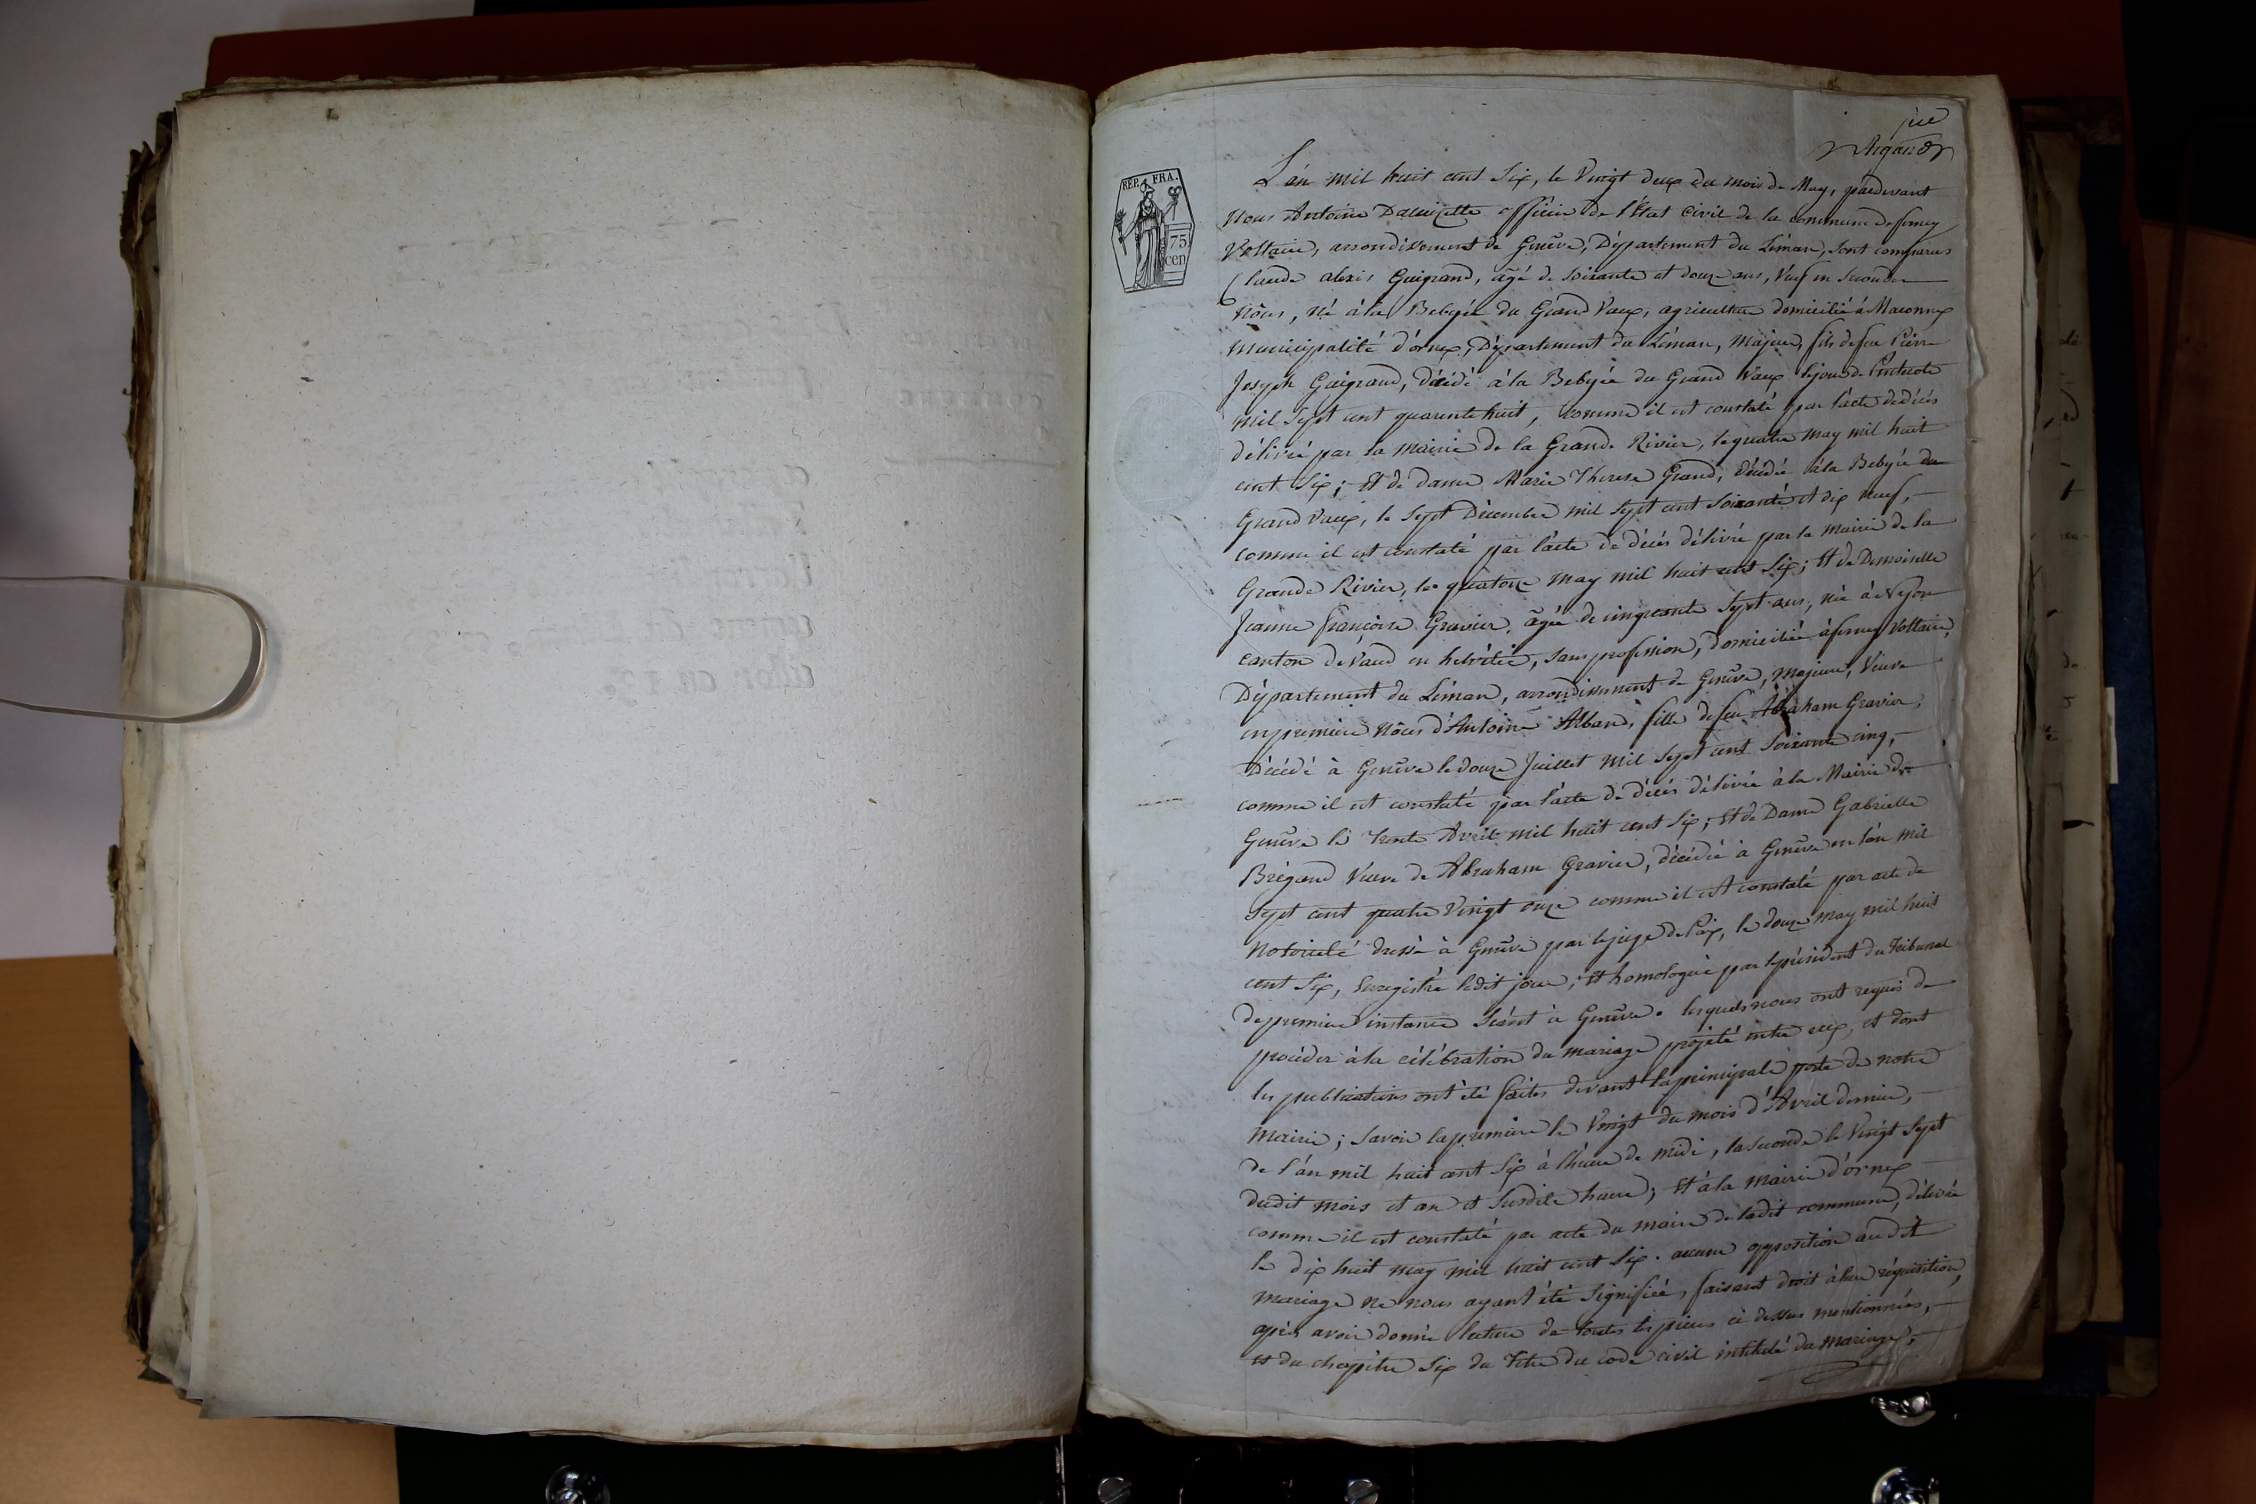 L'an mil huit cent Six, le Vingt deux du mois de May, pardevant
Nous Antoine officier de l'Etat Civil de la Commune de ferney
Voltaire, arrondissement de Genêve, Département du Léman, Sont comparus
Claude alexis Guigrand, agé de Soixante et douze ans, Veuf en Secondes
Nôces, né à la Bebyée du Grand Vaux, agriculteur domicilié à Maconnex
Municipalité d'ornex, Département du Léman, Majeur, fils de feu Pierre
Joseph Guigrand, décédé à la Bebyée du Grand Vaux le jour de Pentecote
mil Sept cent quarente huit, comme il est constaté par l'acte de décès
délivré par la Mairie de la Grande Rivier, le quatre may mil huit
cent Six; et de dame Marie Therese Grand, décédée à la Bebyée du
Grand Vaux, le Sept Décembre mil Sept cent Soixante et dix neuf,
comme il est constaté par l'acte de décès délivré par la Mairie de la
Grande Rivier, le quatorze May mil huit cent Six; et de Demoiselle
Jeanne françoise Gravier, agée de cinquante Sept ans, née à Nyon
canton de Vaud en helvétie, sans profession, domiciliée à ferney Voltaire,
Département du Léman, arrondissement de Genêve, majeure, Veuve
en première Nôces d'Antoine Alban, fille de feu Abraham Gravier,
Décédé à Genêve le douze Juillet Mil Sept cent Soixante cinq,
comme il est constaté par l'acte de décès délivré à la Mairie de
Genêve le Trente Avril mil huit cent Six; et de Dame Gabrielle
Brégand Veuve de Abraham Gravier, décédée à Genêve en l'an mil
Sept cent quatre Vingt onze comme il est constaté par acte de
Notoriété dressé à Genêve par le juge de Paix, le douze may mil huit
cent Six, Enregistré ledit jour; et homologué par le président du Tribunal
de première instance Séant à Genêve. lesquels nous ont requis de
procéder à la célébration du mariage projeté entre eux, et dont
les publications ont été faites devant la principale porte de notre
Mairie; Savoir la première le Vingt du mois d'Avril dernier,
de l'an mil huit cent Six à l'heure de midi, la Seconde le Vingt Sept
dudit mois et an et Susdite heure; et à la Mairie d'ornex
comme il est constaté par acte du maire de ladite commune, délivré
le dix huit may mil huit cent Six. aucune opposition audit
mariage ne nous ayant été Signifiée, faisant droit à leur réquisition,
après avoir donné lecture de toutes les pièces ci dessus mentionnées,
et du chapitre Six du titre du code civil intitulé du Mariage,
REP. FRA.
75
cen